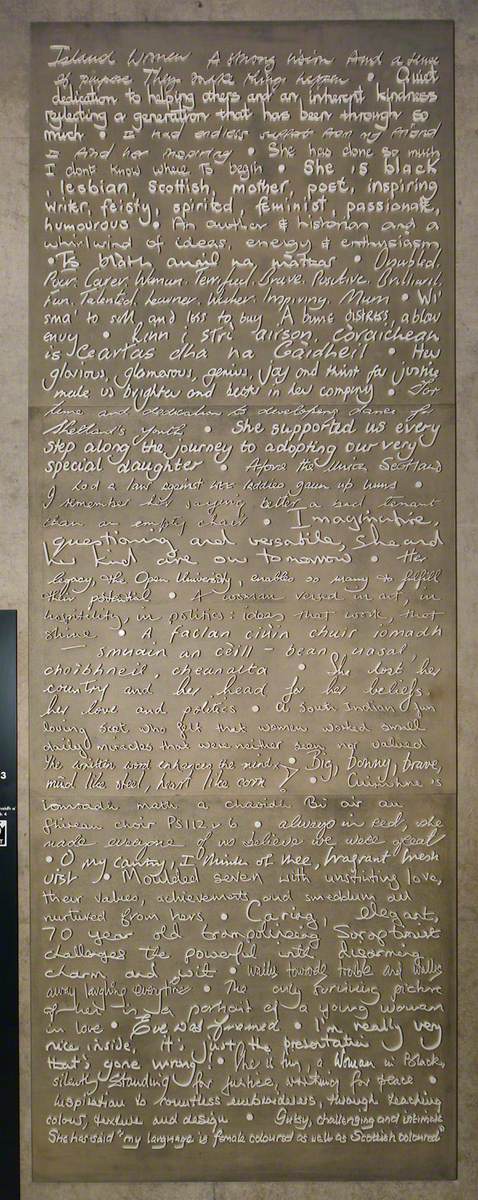 Island Women A strong vision And a sense
of purpose They make things happen • Quiet
dedication to helping others and an inherent kindness
reflecting a generation that has been through so
much • I had endless support from my friend
I find her inspiring • She has done so much
I don't know where to begin • She is black
, lesbian, Scottish, mother, poet, inspiring
writer, feisty, spirited, feminist, passionate,
humourous • An author & historian and a
whirlwind of ideas, energy & enthusiasm
• Is blàth anail na màthar •
Poor. Carer. Woman. Terrified. Brave. Positive. Brilliant.
Fun. Talented. Learner. Worker. Inspiring. Mum • Wi'
sma' to sell, and less to buy A bune distress, ablow
envy • Linn i strì airson còraichean
is Ceartas dha na Gàidheil • Her
glorious, glamorous, genius, joy and thirst for justice
made us brighter and better in her company • For
time and dedication to developing dance for
Shetland's youth • She supported us every
step along the journey to adopting our very
special daughter • Afore the Union Scotland
had a law against wee laddies gaun up lums •
I remember her saying better a bad tenant
than an empty chair • Imaginative,
questioning and versatile, She and
her kind are our tomorrow • Her
legacy, the Open University, enables so many to fulfill
their potential • A woman versed in art, in
hospitality, in politics: ideas that work, that
shine • A faclan ciùin chuir iomadh
smuain an cèill - bean uasal,
choibhneil, cheanalta • She lost her
country and her head for her beliefs,
her love and politics • A South Indian fun
loving Scot, who felt that women worked small
daily miracles that were neither seen nor valued
The written word enhances the mind • Big, Donny, brave,
mind like steel, heart like corn • Cuimhne is
iomradh math a chaoidh Bi air an
fhìrean choir Ps 112 v 6 • always in red, she
made everyone of us believe we were great
• O my cailin, I think of thee, fragrant fresh
Uist • Moulded seven with unstinting love,
their values, achievements and smeddum all
nurtured from hers • Caring, elegant,
70 year old trampolining Soroptimist
challenges the powerful with disarming
charm and wit • Walks towards trouble and walks
away laughing everytime • The only surviving picture
of her is a portrait of a young woman
in love • Eve was framed • I'm really very
nice inside, it's just the presentation
that's gone wrong! • She is tiny, a Woman in Black,
silently standing for justice, waiting for peace •
Inspiration to countless embroiderers, through teaching
colour, texture and design • Gutsy, challenging and intimate
She has said "my language is female coloured as well as Scottish coloured"
3